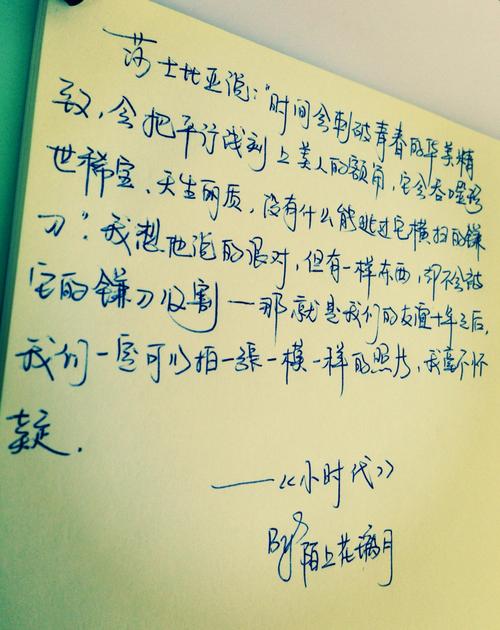 莎士比亚说:"时间会刺破青春的华美精
致,会把平行线刻上美人的额角,它会吞噬稀
世稀宝、天生丽质,没有什么能逃过它横扫的镰
刀".我想他说的很对,但有一样东西,却不会被
它的镰刀收割——那就是我们的友谊十年之后,
我们一定可以拍一张一模一样的照片,我毫不怀
疑.
——《小时代》
By 陌上花璃月